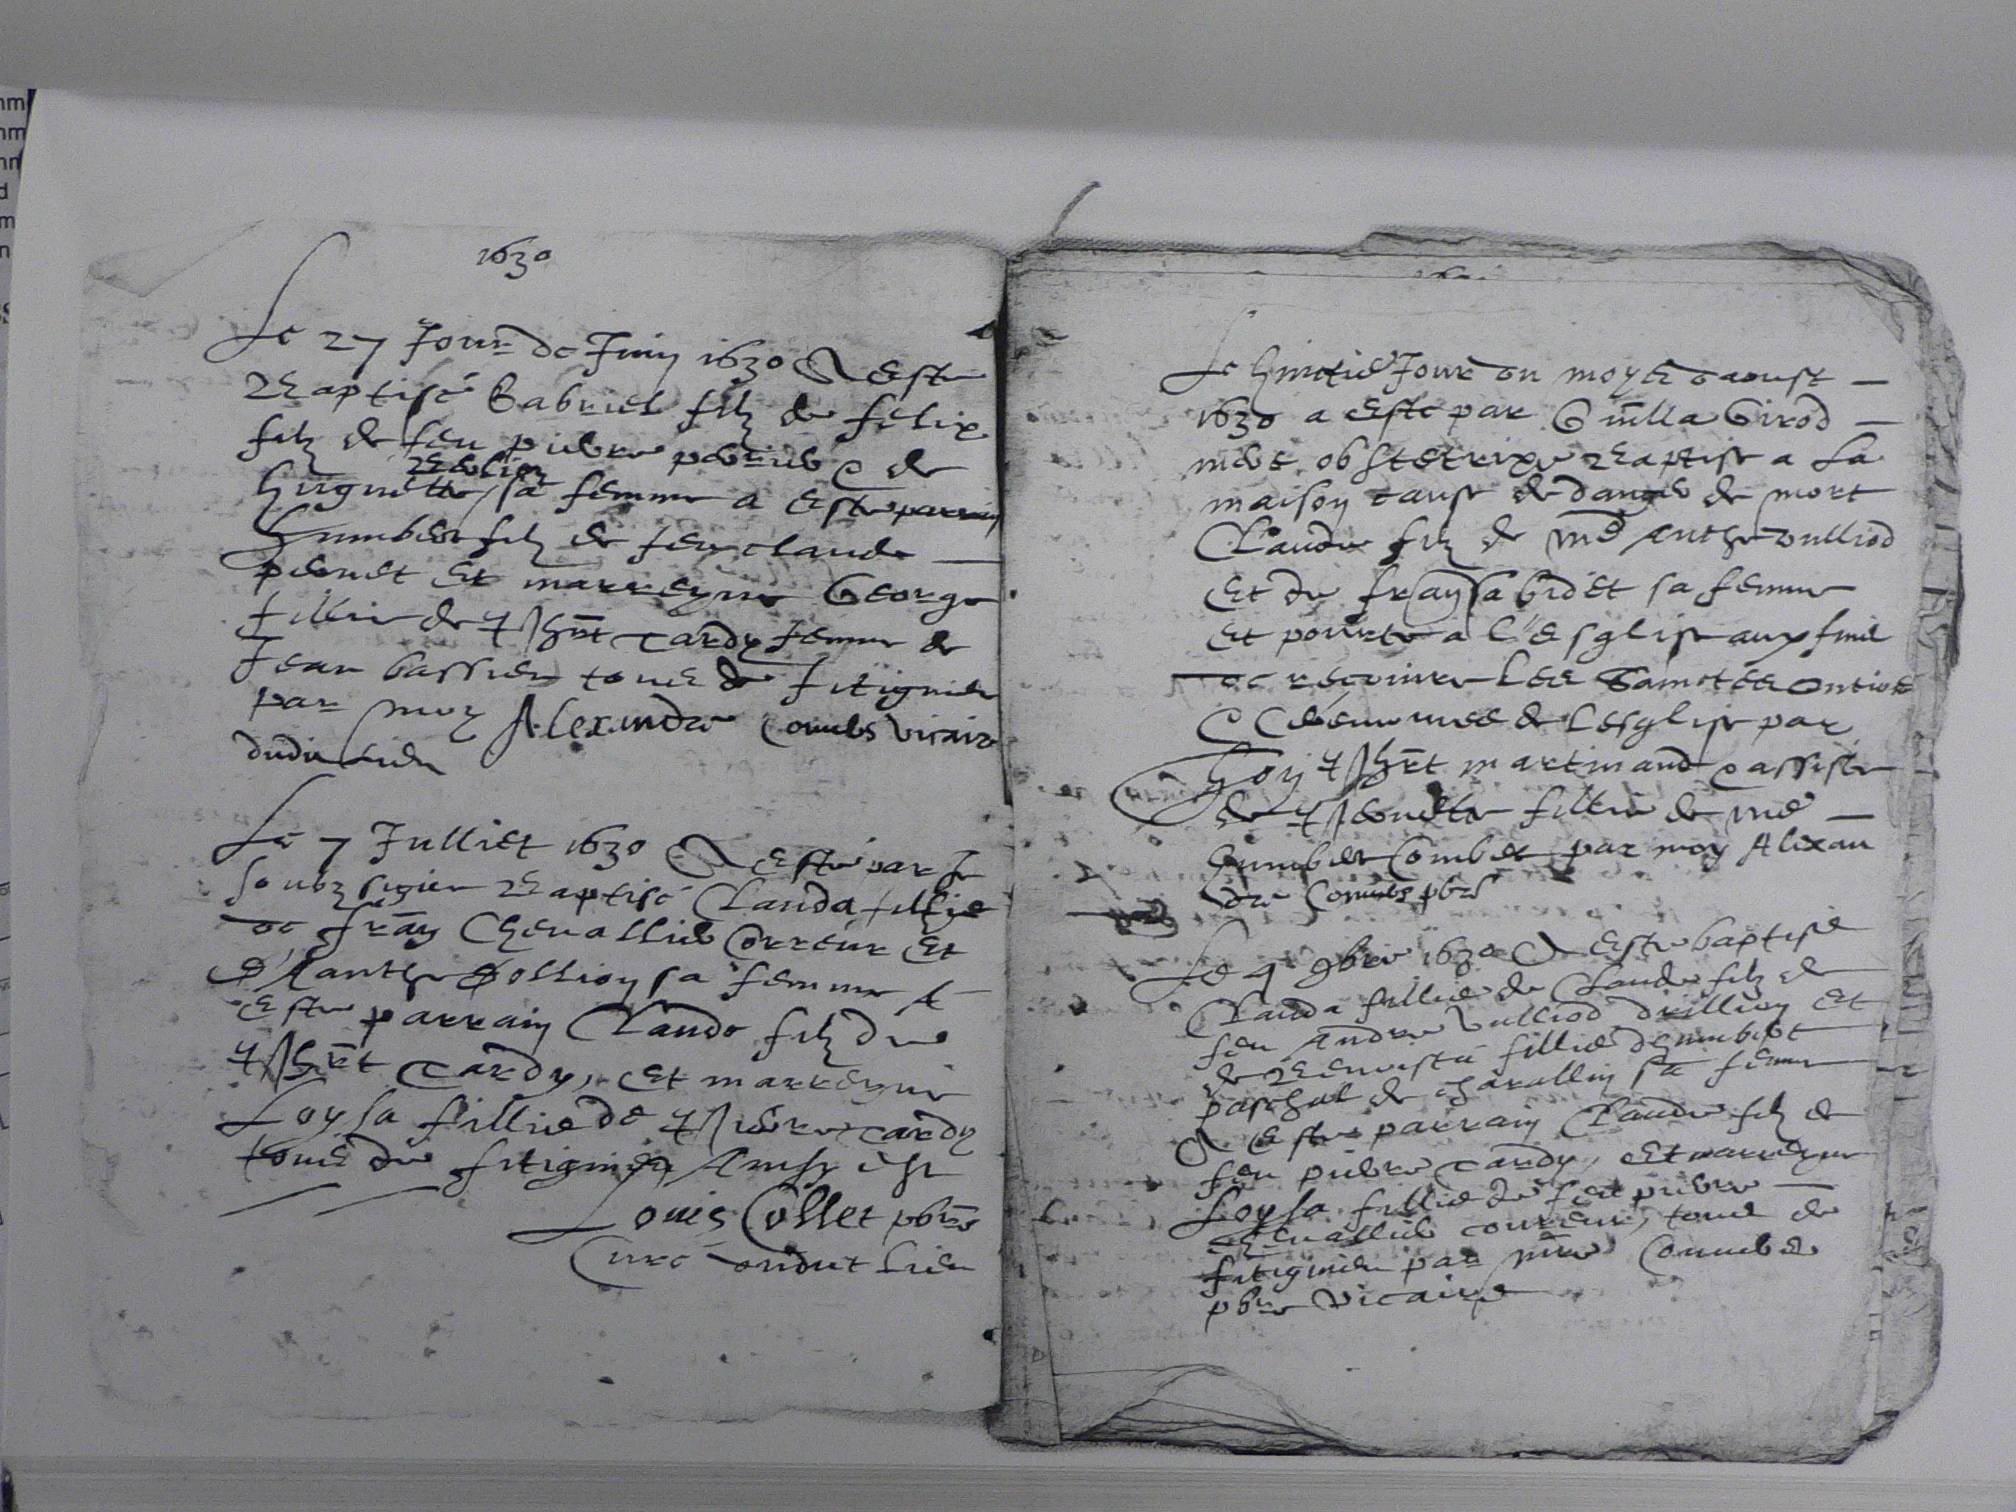 1630
Le 27 Jour de Juin 1630 A este
Baptisé Gabriel filz de felix
filz de feu pierre perrier & de
berlier
huguette sa femme a este parrain
humbert filz de feu claude
pernet et marreyne George
fillie de phibert tardy femme de
Jean bassier tous de fitignieu
par moy Alexandre Combes vicaire
dudit lieu
Le 7 Julliet 1630 A este par Je
soubz signer Baptisé Clauda fillie
de fran Chevallier Correur et
d'Anthe Sollion sa femme A
este parrain Claude filz de
phibert tardy, et marreyne
Loysa fillie de pierre tardy
tous de fitignieu Ainsy est
Louis Collet pbre
Curé dudit lieu
Le huictie Jour du moys daoust
1630 a este par Guilla Girod
mere obstetrixe Baptise a la
maison cause de danger de mort
Claude filz de me Anthe vulliod
et de fransa bidet sa femme
et pourte a l'esglise aux fins
de recepvoir les sainctes onctions
& ceremonies de lesglise par
hon phibert martinand & assiste
de pernette fillie de me
humbert Combet par moy Alexan
dre Combes pbre
Le 4 9bre 1630 A este baptisé
Clauda fillie de Claude filz de
feu Andre vulliod drillion et
de Benoiste fillie dhumbert
paschal de charallin sa femme
A este parrain Claude filz de
feu pierre tardy, et marreyne
Loysa fillie de feu pierre
chevallier coureur, tous de
fitignieu par mre Combes
pbre vicaire